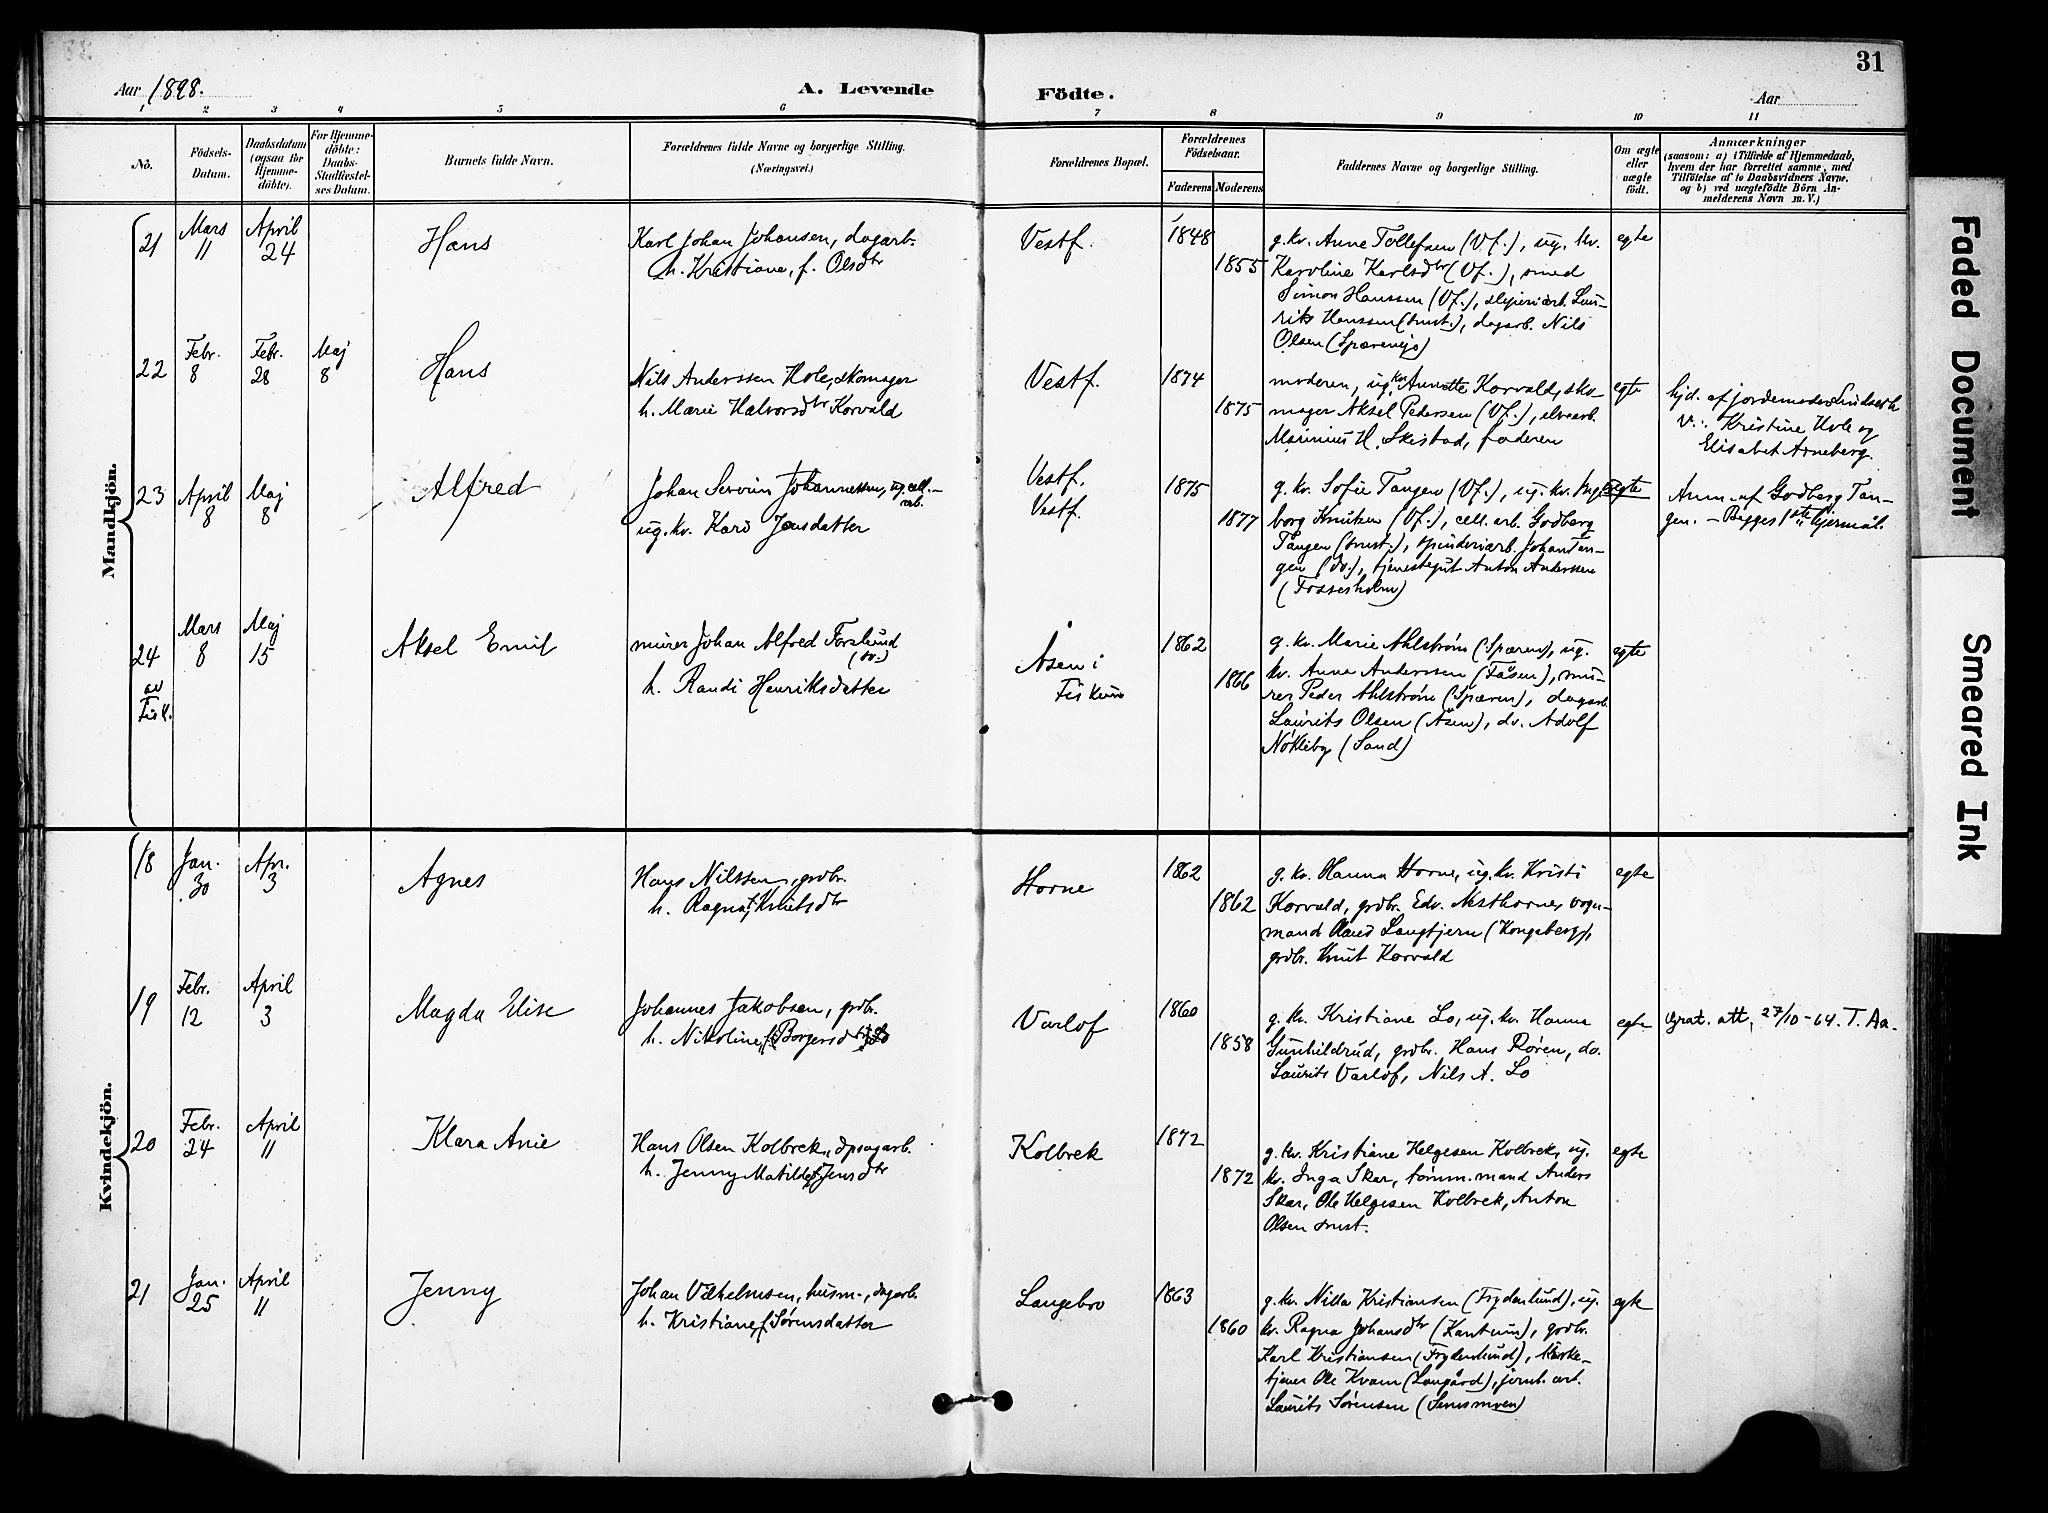 31
Aar 1898.
A. Levende
Födte.
Aar
1 2 3 4 5 6 7 8 9 10 11
No.
Födsels-
Datum.
Daabsdatum
(ogsaa for
Hjemme-
döbte).
For Hjemme-
döbte:
Daabs-
Stadfæstel-
ses Datum.
Barnets fulde Navn.
Forældrenes fulde Navne og borgerlige Stilling.
(Næringsvei.)
Forældrenes Bopæl.
Forældrenes
Födselsaar.
Faderens Moderens
Faddernes Navne og borgerlige Stilling.
Om ægte
eller
uægte
födt.
Anmærkninger
(saasom: a) i Tilfælde af Hjemmedaab,
hvem der har forrettet samme, med
Tilföielse af to Daabsvidners Navne.
og b) ved uægtefödte Börn An-
melderens Navn m. V.)
Mandkjön.
21
Mars
11
April
24
Hans
Karl Johan Johansen, dagarb.
h. Kristiane, f. Olsdtr
Vestf.
1848
1855
g. kv. Anne Tollefsen (Vf.), ug. kv.
Karoline Karlsdtr (Vf.), smed
Simon Hanssen (Vf.), sliperiarb. Lau-
rits Hanssen (smst.), dagarb. Nils
Olsen
egte
22
Febr.
8
Febr.
28
Maj
8
Hans
Nils Anderssen Hole, skomager
h. Marie Halvorsdtr Korvald
Vestf.
1874
1875
moderen, ug. kv. Annette Korvald, sko-
mager Aksel Pedersen (Vf.), elvearb.
Marinius H. Skistad, faderen
egte
hjd. af jordemoder Lindseth
V.: Kristine Hole og
Elisabet Arneberg.
23
April
8
Maj
8
Alfred
Johan Johannessen, ug. cell.-
arb.
ug. kv. Kari Jensdatter
Vestf.
Vestf.
1875
1877
g. kv. Sofie Tangen (Vf.), ug. kv. Inge-
borg Knutsen (Vf.), cell. arb. Godberg
Tangen (smst.), spinderiarb. Johan Tan-
gen (do.), tjenestegut Anton Andersen
(Fossesholm)
uegte
Anm. af Godberg Tan-
gen. - Begges 1ste lejermål.
24
av
Fisk.
Mars
8
Maj
15
Aksel Emil
murer Johan Alfred Forslund
(sv.)
h. Randi Henriksdatter
Åsen i
Fiskum
1862
1866
g. kv. Marie Ahlstrøm (Spæren), ug.
kv. Anna Anderssen (Tåsen), mu-
rer Peder Ahlstrøm (Spæren), dagarb.
Laurits Olsen (Åsen), do. Adolf
Nøkleby (Sand)
egte
Kvindekjön.
18
Jan.
30
Apr.
3
Agnes
Hans Nilssen, grdbr.
h. Ragna f. Knutsdtr
Horne
1862
1862
g. kv. Hanna Horne, ug. kv. Kristi
Korvald, grdbr. Edv. Nesthorne, vogn-
mand Langtjern (Kongsberg),
grdbr. Knut Korvald
egte
19
Febr.
12
April
3
Magda Elise
Johannes Jakobsen, grdbr.
h. Nikoline, f. Borgersdtr
Varlof
1860
1858
g. kv. Kristiane Lo, ug. kv. Hanna
Gunhildrud, grdbr. Hans Røren, do.
Laurits Varlof, Nils A. Lo
egte
Grat. att. 27/10-64. T. Aa.
20
Febr.
24
April
11
Klara Anie
Hans Olsen Kolbrek, dpsagarb.
h. Jenny Matilde f. Jensdtr
Kolbrek
1872
1872
g. kv. Kristiane Helgesen Kolbrek, ug.
kv. Inga Skar, tømm.mand Anders
Skar, Ole Helgesen Kolbrek, Anton
Olsen smst.
egte
21
Jan.
25
April
11
Jenny
Johan Vilhelmsen, husm., dagarb.
h. Kristiane f. Sørensdatter
Langebro
1863
1860
g. kv. Nilla Kristiansen (Frydenlund), ug.
kv. Ragna Johansdtr (Kantum), grdbr.
Karl Kristiansen (Frydenlund), kirke-
tjener Ole Kvam (Langård), jernb. arb.
Laurits Sørensen
egte
Faded Document
Smeared Ink